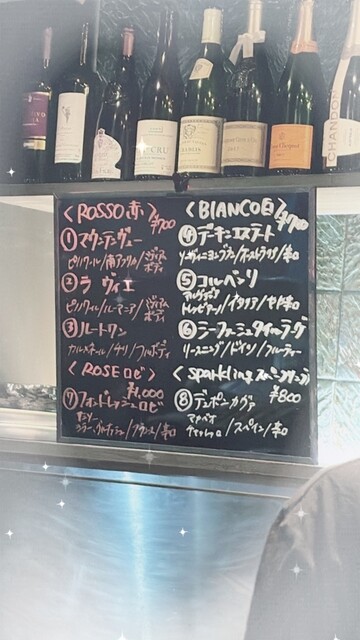 CHANDON
<ROSSO 赤> ¥700
① マウンテンヴュー
ピノノワール/南アフリカ/ミディアムボディ
② ラ ヴィエ
ピノノワール/ルーマニア/ミディアムボディ
③ ルートワン
カルメネール/チリ/フルボディ
<ROSE ロゼ> ¥1,000
⑦
サンソー
グラン・ /フランス/辛口
<BIANCO 白> ¥700
④ デーキンエステート
ソーヴィニヨンブラン/オーストラリア/辛口
⑤ コルベンリ
/イタリア/やや辛口
⑥
リースニング/ドイツ/フルーティー
<sparkling スパークリング>
¥800
⑧ テンポーニカヴァ
マカベオ
/スペイン/辛口